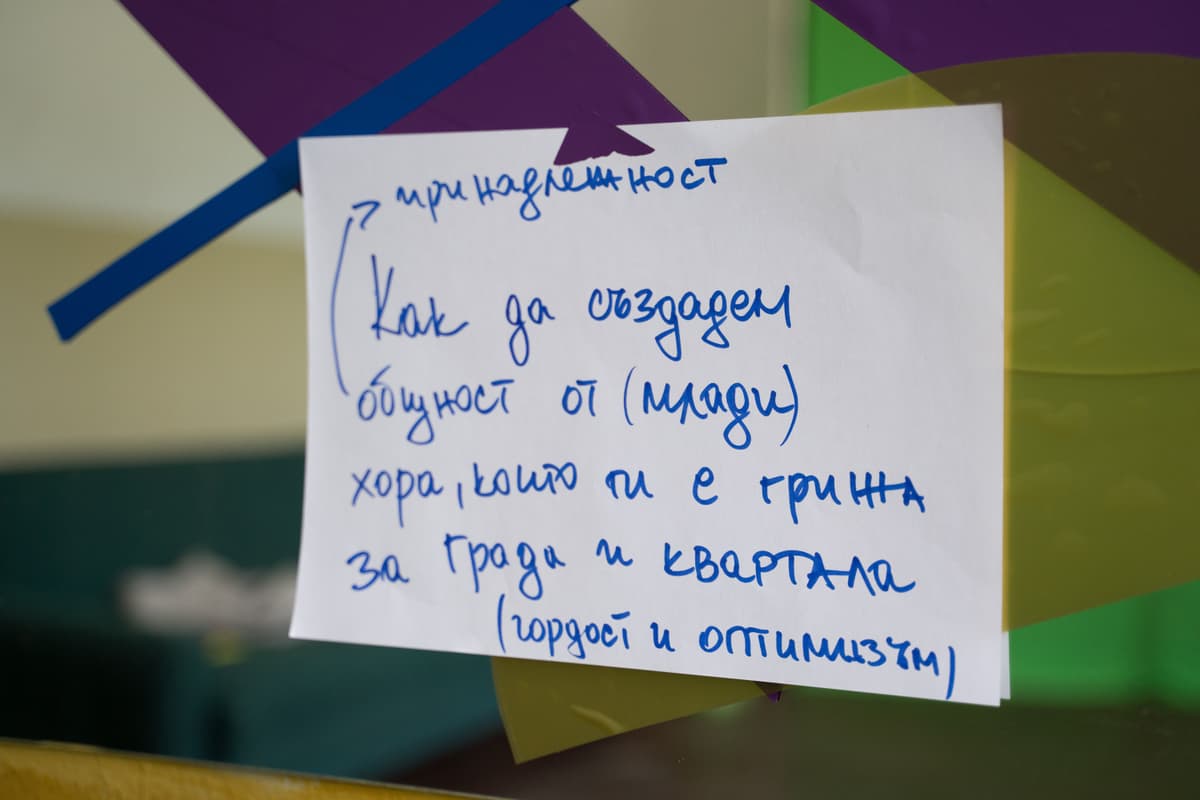 принадлежност
Как да създадем
общност от (млади)
хора, които ги е грижа
за града и квартала
(гордост и оптимизъм)